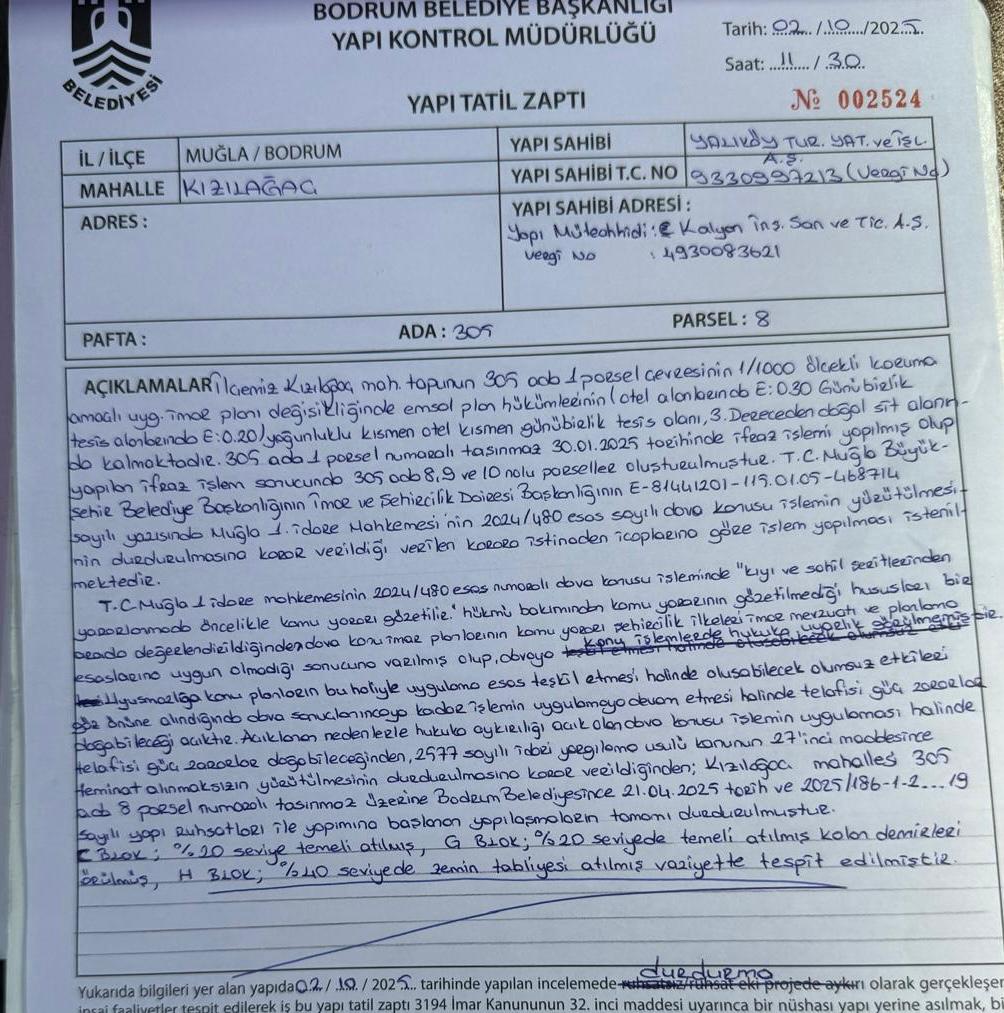 BODRUM BELEDİYE BAŞKANLIĞI
YAPI KONTROL MÜDÜRLÜĞÜ
Tarih: 02 / 10 / 2025.
Saat: 11 / 30.
BELEDİYESİ
YAPI TATİL ZAPTI
№ 002524
İL / İLÇE MUĞLA / BODRUM
YAPI SAHİBİ YALIKÖY TUR. YAT. ve İşL. A.Ş.
MAHALLE KIZILAĞAÇ
YAPI SAHİBİ T.C. NO 9330997213 (Vergi No)
ADRES :
YAPI SAHİBİ ADRESİ :
Yapı Müteahhidi : Kalyon İnş. San ve Tic. A.Ş.
Vergi No : 4930083621
PAFTA : ADA : 305 PARSEL : 8
AÇIKLAMALAR İlçemiz Kızılağaç mah. tapunun 305 ada 1 parsel çevresinin 1/1000 ölçekli koruma
amaçlı uyg. imar planı değişikliğinde emsal plan hükümlerinin (otel alanlarında E: 0.30 Günübirlik
tesis alanlarında E: 0.20) yoğunluklu kısmen otel kısmen günübirlik tesis alanı, 3. Dereceden doğal sit alanın-
da kalmaktadır. 305 ada 1 parsel numaralı taşınmaz 30.01.2025 tarihinde ifraz işlemi yapılmış olup
yapılan ifraz işlem sonucunda 305 ada 8, 9 ve 10 nolu parseller oluşturulmuştur. T.C. Muğla Büyük-
şehir Belediye Başkanlığının İmar ve Şehircilik Dairesi Başkanlığının E-81441201-115.01.05-468714
sayılı yazısında Muğla 1. idare Mahkemesi'nin 2024/480 esas sayılı dava konusu işlemin yürütülmesi-
nin durdurulmasına karar verildiği verilen karara istinaden icaplarına göre işlem yapılması istenil-
mektedir.
T.C. Muğla 1 idare mahkemesinin 2024/480 esas numaralı dava konusu işleminde "kıyı ve sahil şeritlerinden
yararlanmada öncelikle kamu yararı gözetilir." hükmü bakımından kamu yararının gözetilmediği hususları bir
arada değerlendirildiğinden dava konu imar planlarının kamu yararı şehircilik ilkeleri imar mevzuatı ve planlama
esaslarına uygun olmadığı sonucuna varılmış olup, davaya konu işlemlerde hukuka uyarlık görülmemiştir.
Uyuşmazlığa konu planların bu haliyle uygulama esas teşkil etmesi halinde oluşabilecek olumsuz etkileri
göz önüne alındığında dava sonuçlanıncaya kadar işlemin uygulamaya devam etmesi halinde telafisi güç zararlar
doğabileceği açıktır. Açıklanan nedenlerle hukuka aykırılığı açık olan dava konusu işlemin uygulaması halinde
telafisi güç zararlar doğabileceğinden, 2577 sayılı idari yargılama usulü kanunun 27'inci maddesince
teminat alınmaksızın yürütülmesinin durdurulmasına karar verildiğinden; Kızılağaç mahallesi 305
ada 8 parsel numaralı taşınmaz üzerine Bodrum Belediyesince 21.04.2025 tarih ve 2025/186-1-2....19
sayılı yapı ruhsatları ile yapımına başlanan yapılaşmaların tamamı durdurulmuştur.
BLOK; %20 seviye temeli atılmış, G BLOK; %20 seviyede temeli atılmış kolon demirleri
örülmüş, H BLOK; %40 seviyede zemin tabliyesi atılmış vaziyette tespit edilmiştir.
Yukarıda bilgileri yer alan yapıda 02 / 10 / 2025.. tarihinde yapılan incelemede ruhsatsız/ruhsat eki projede aykırı durdurma olarak gerçekleşen
inşai faaliyetler tespit edilerek iş bu yapı tatil zaptı 3194 İmar Kanununun 32. inci maddesi uyarınca bir nüshası yapı yerine asılmak, bi